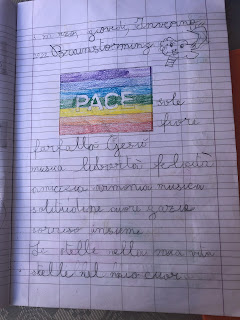 giovedì
Brainstorming
PACE sole
fiore
farfalla Gesù
libertà felicità
amicizia armonia musica
solitudine cuore
sorriso insieme
Le stelle alla mia
stelle nel mio cuor